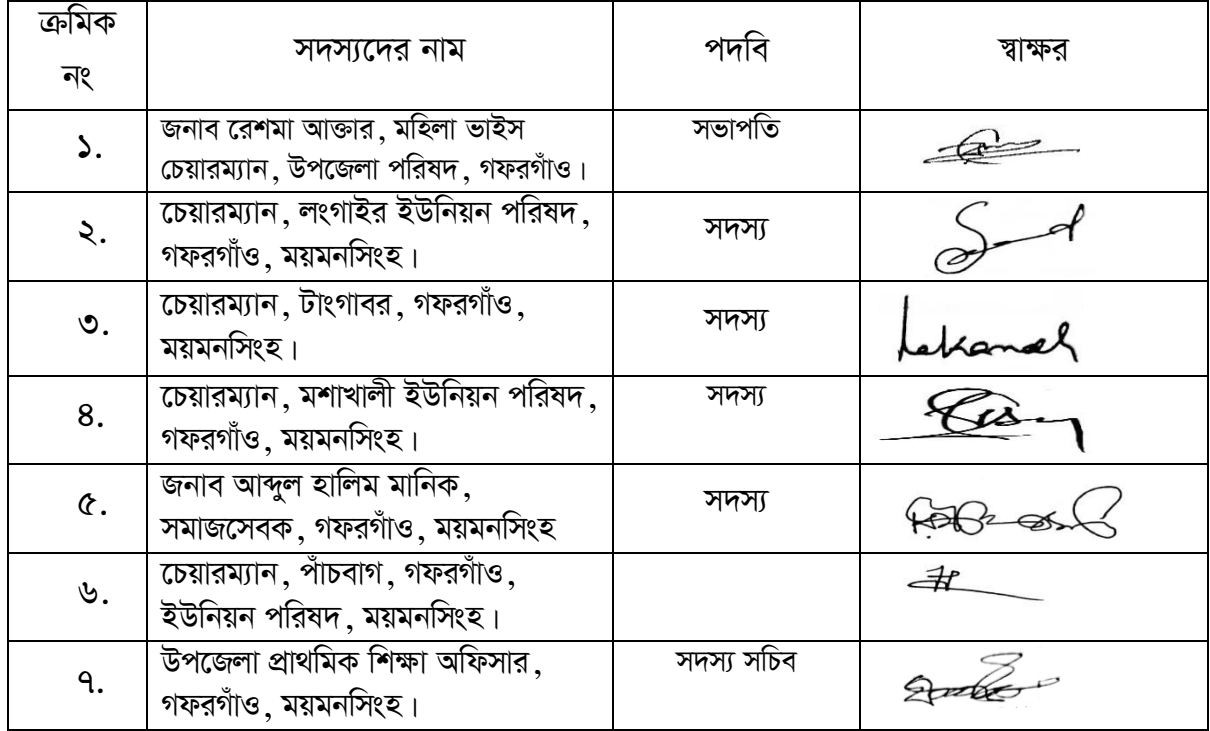 ক্রমিক
নং
সদস্যদের নাম
পদবি
স্বাক্ষর
১.
জনাব রেশমা আক্তার, মহিলা ভাইস
চেয়ারম্যান, উপজেলা পরিষদ, গফরগাঁও।
সভাপতি
২.
চেয়ারম্যান, লংগাইর ইউনিয়ন পরিষদ,
গফরগাঁও, ময়মনসিংহ।
সদস্য
৩.
চেয়ারম্যান, টাংগাবর, গফরগাঁও,
ময়মনসিংহ।
সদস্য
৪.
চেয়ারম্যান, মশাখালী ইউনিয়ন পরিষদ,
গফরগাঁও, ময়মনসিংহ।
সদস্য
৫.
জনাব আব্দুল হালিম মানিক,
সমাজসেবক, গফরগাঁও, ময়মনসিংহ
সদস্য
৬.
চেয়ারম্যান, পাঁচবাগ, গফরগাঁও,
ইউনিয়ন পরিষদ, ময়মনসিংহ।
৭.
উপজেলা প্রাথমিক শিক্ষা অফিসার,
গফরগাঁও, ময়মনসিংহ।
সদস্য সচিব